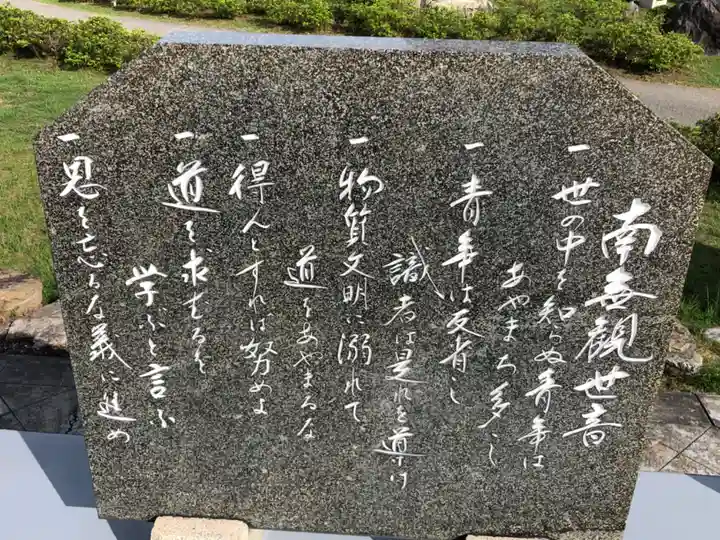 南無観世音
一世の中を知らぬ青年は
あやまち多し
一青年は反省し
識者は是れを導け
一物質文明に溺れて
道をあやまるな
一得んとすれば努めよ
一道を求むるを
学ぶと言ふ
一恩を忘るな義に進め